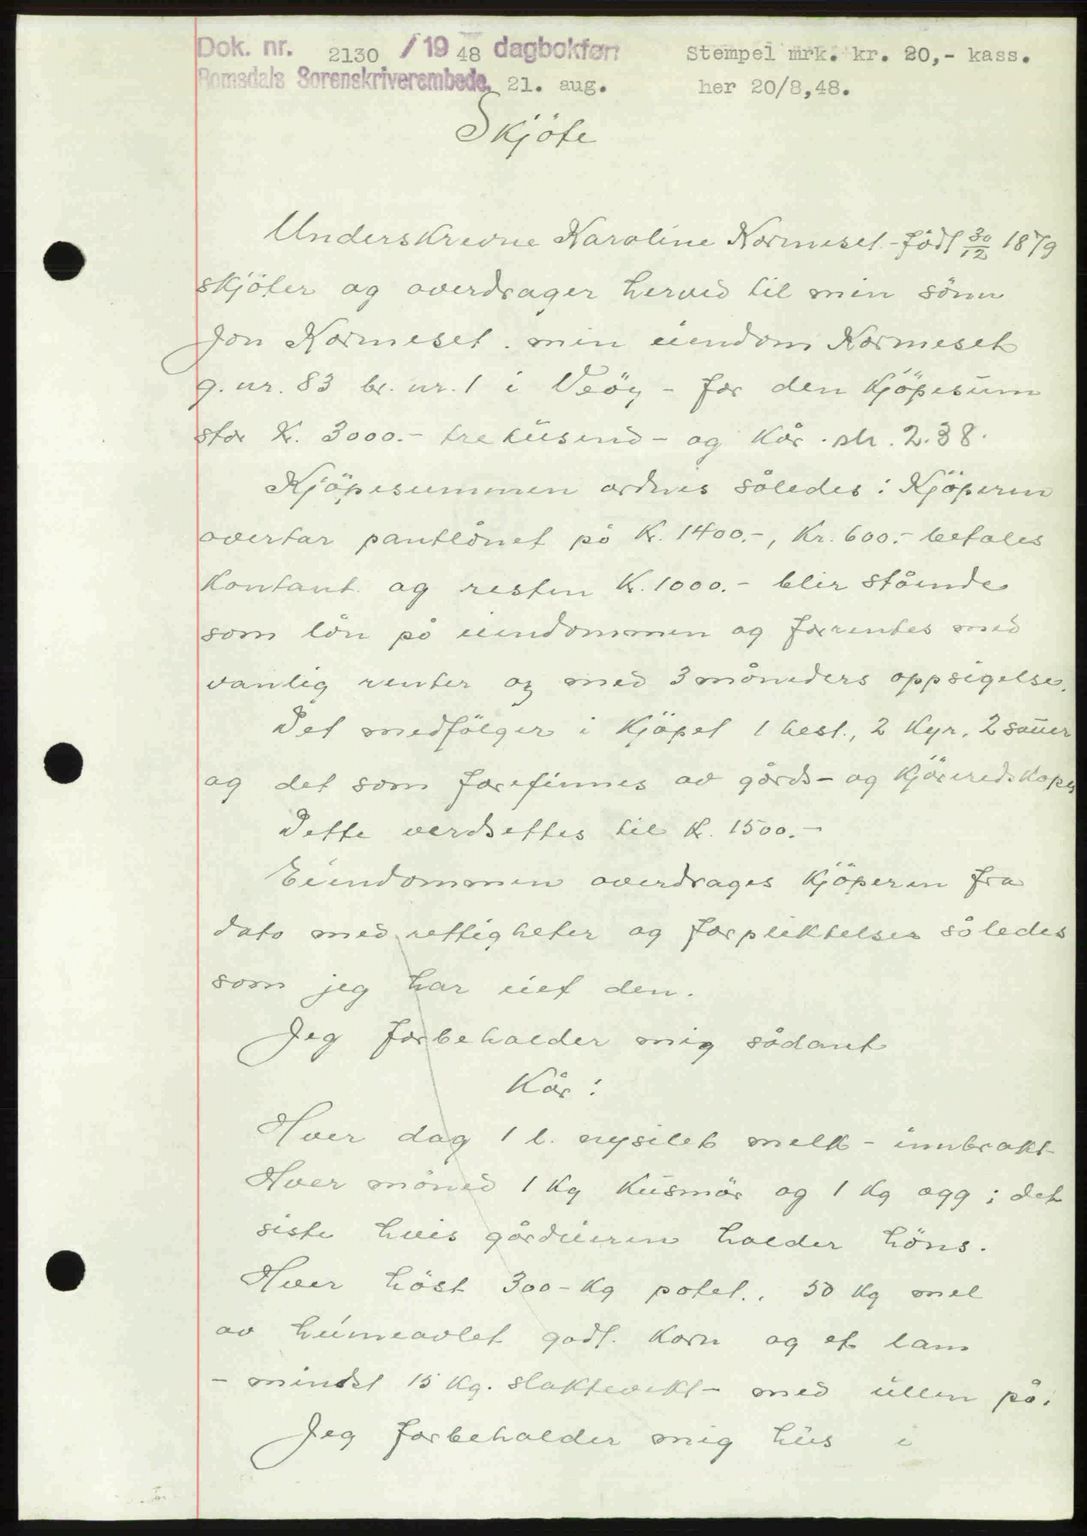 Dok. nr. 2130 /1948 dagbokført Stempel mrk. kr. 20,- kass.
Romsdals Sorenskriverembede, 21. aug. her 20/8,48.
Skjöte
Underskrevne Karoline Kormeset - född 30/12 1879
skjöter og overdrager herved til min sönn
Jon Kormeset. min eiendom Kormeset
g. nr. 83 br. nr. 1 i Veöy - for den kjöpesum
stor Kr. 3000.- tretusend - og kår.
Kjöpesummen ordnes således: Kjöperen
overtar pantlånet på Kr. 1400.-, Kr. 600.- betales
kontant og resten Kr. 1000.- blir stående
som lån på eiendommen og forrentes med
vanlig renter og med 3 måneders oppsigelse.
Det medfölger i kjöpet 1 hest., 2 kyr. 2 sauer
og det som forefinnes av gårds- og kjöreredskaper
Dette verdsettes til Kr. 1500.-
Eiendommen overdrages kjöperen fra
dato med rettigheter og forpliktelser således
som jeg har eiet den.
Jeg forbeholder mig sådant
Kår:
Hver dag 1 l. nysilet melk - innbrakt
Hver måned 1 kg kusmör og 1 kg egg; det
siste hvis gårdeieren holder höns.
Hver höst 300- kg potet., 50 kg mel
av heimeavlet godt. korn og et lam
- mindst 15 kg. slaktevekt - med ullen på.
Jeg forbeholder mig hus i